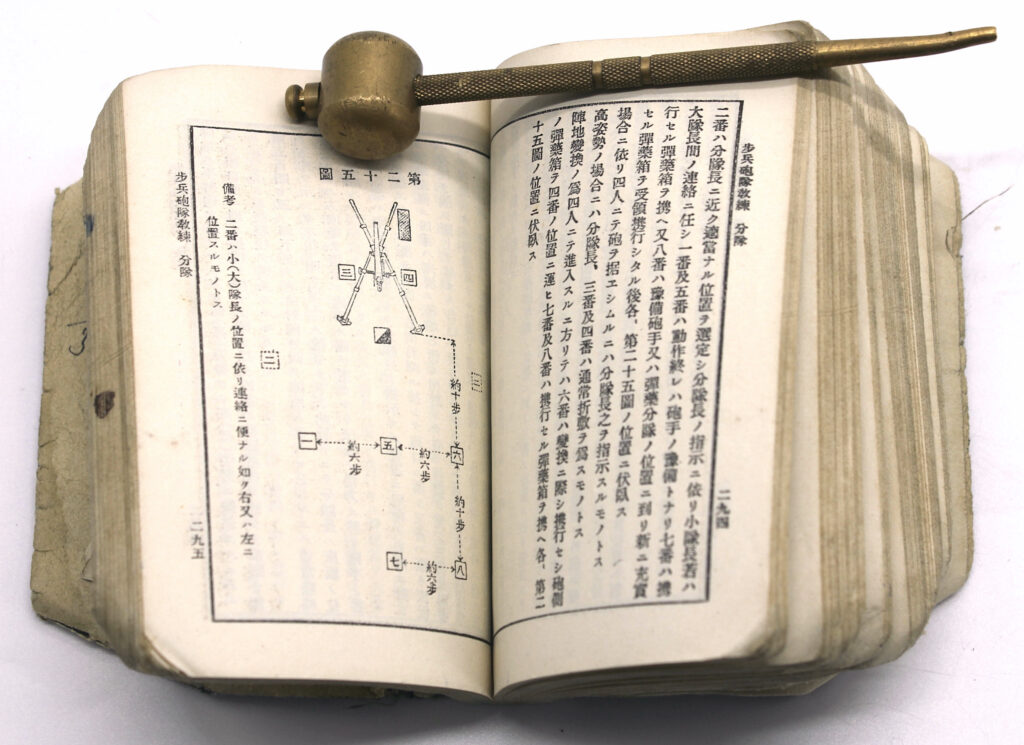 步兵砲隊敎練 分隊
二九四
二番ハ分隊長ニ近ク適當ナル位置ヲ選定シ分隊長ノ指示ニ依リ小隊長若ハ
大隊長間ノ連絡ニ任シ一番及五番ハ動作終レハ砲手ノ豫備トナリ七番ハ攜
行セル彈藥箱ヲ攜ヘ又八番ハ豫備砲手又ハ彈藥分隊ノ位置ニ到リ新ニ充實
セル彈藥箱ヲ受領攜行シタル後各、第二十五圖ノ位置ニ伏臥ス
場合ニ依リ四人ニテ砲ヲ据エシムルニハ分隊長之ヲ指示スルモノトス
高姿勢ノ場合ニハ分隊長、三番及四番ハ通常折敷ヲ爲スモノトス
陣地變換ノ爲四人ニテ進入スルニ方リテハ六番ハ變換ニ際シ攜行セシ砲側
ノ彈藥箱ヲ四番ノ位置ニ運ヒ七番及八番ハ攜行セル彈藥箱ヲ攜ヘ各、第二
十五圖ノ位置ニ伏臥ス
第二十五圖
三
四
二
二
約十步
一
約六步
五
約六步
六
約十步
七
約六步
八
備考 二番ハ小(大)隊長ノ位置ニ依リ連絡ニ便ナル如ク右又ハ左ニ
位置スルモノトス
步兵砲隊敎練 分隊
二九五